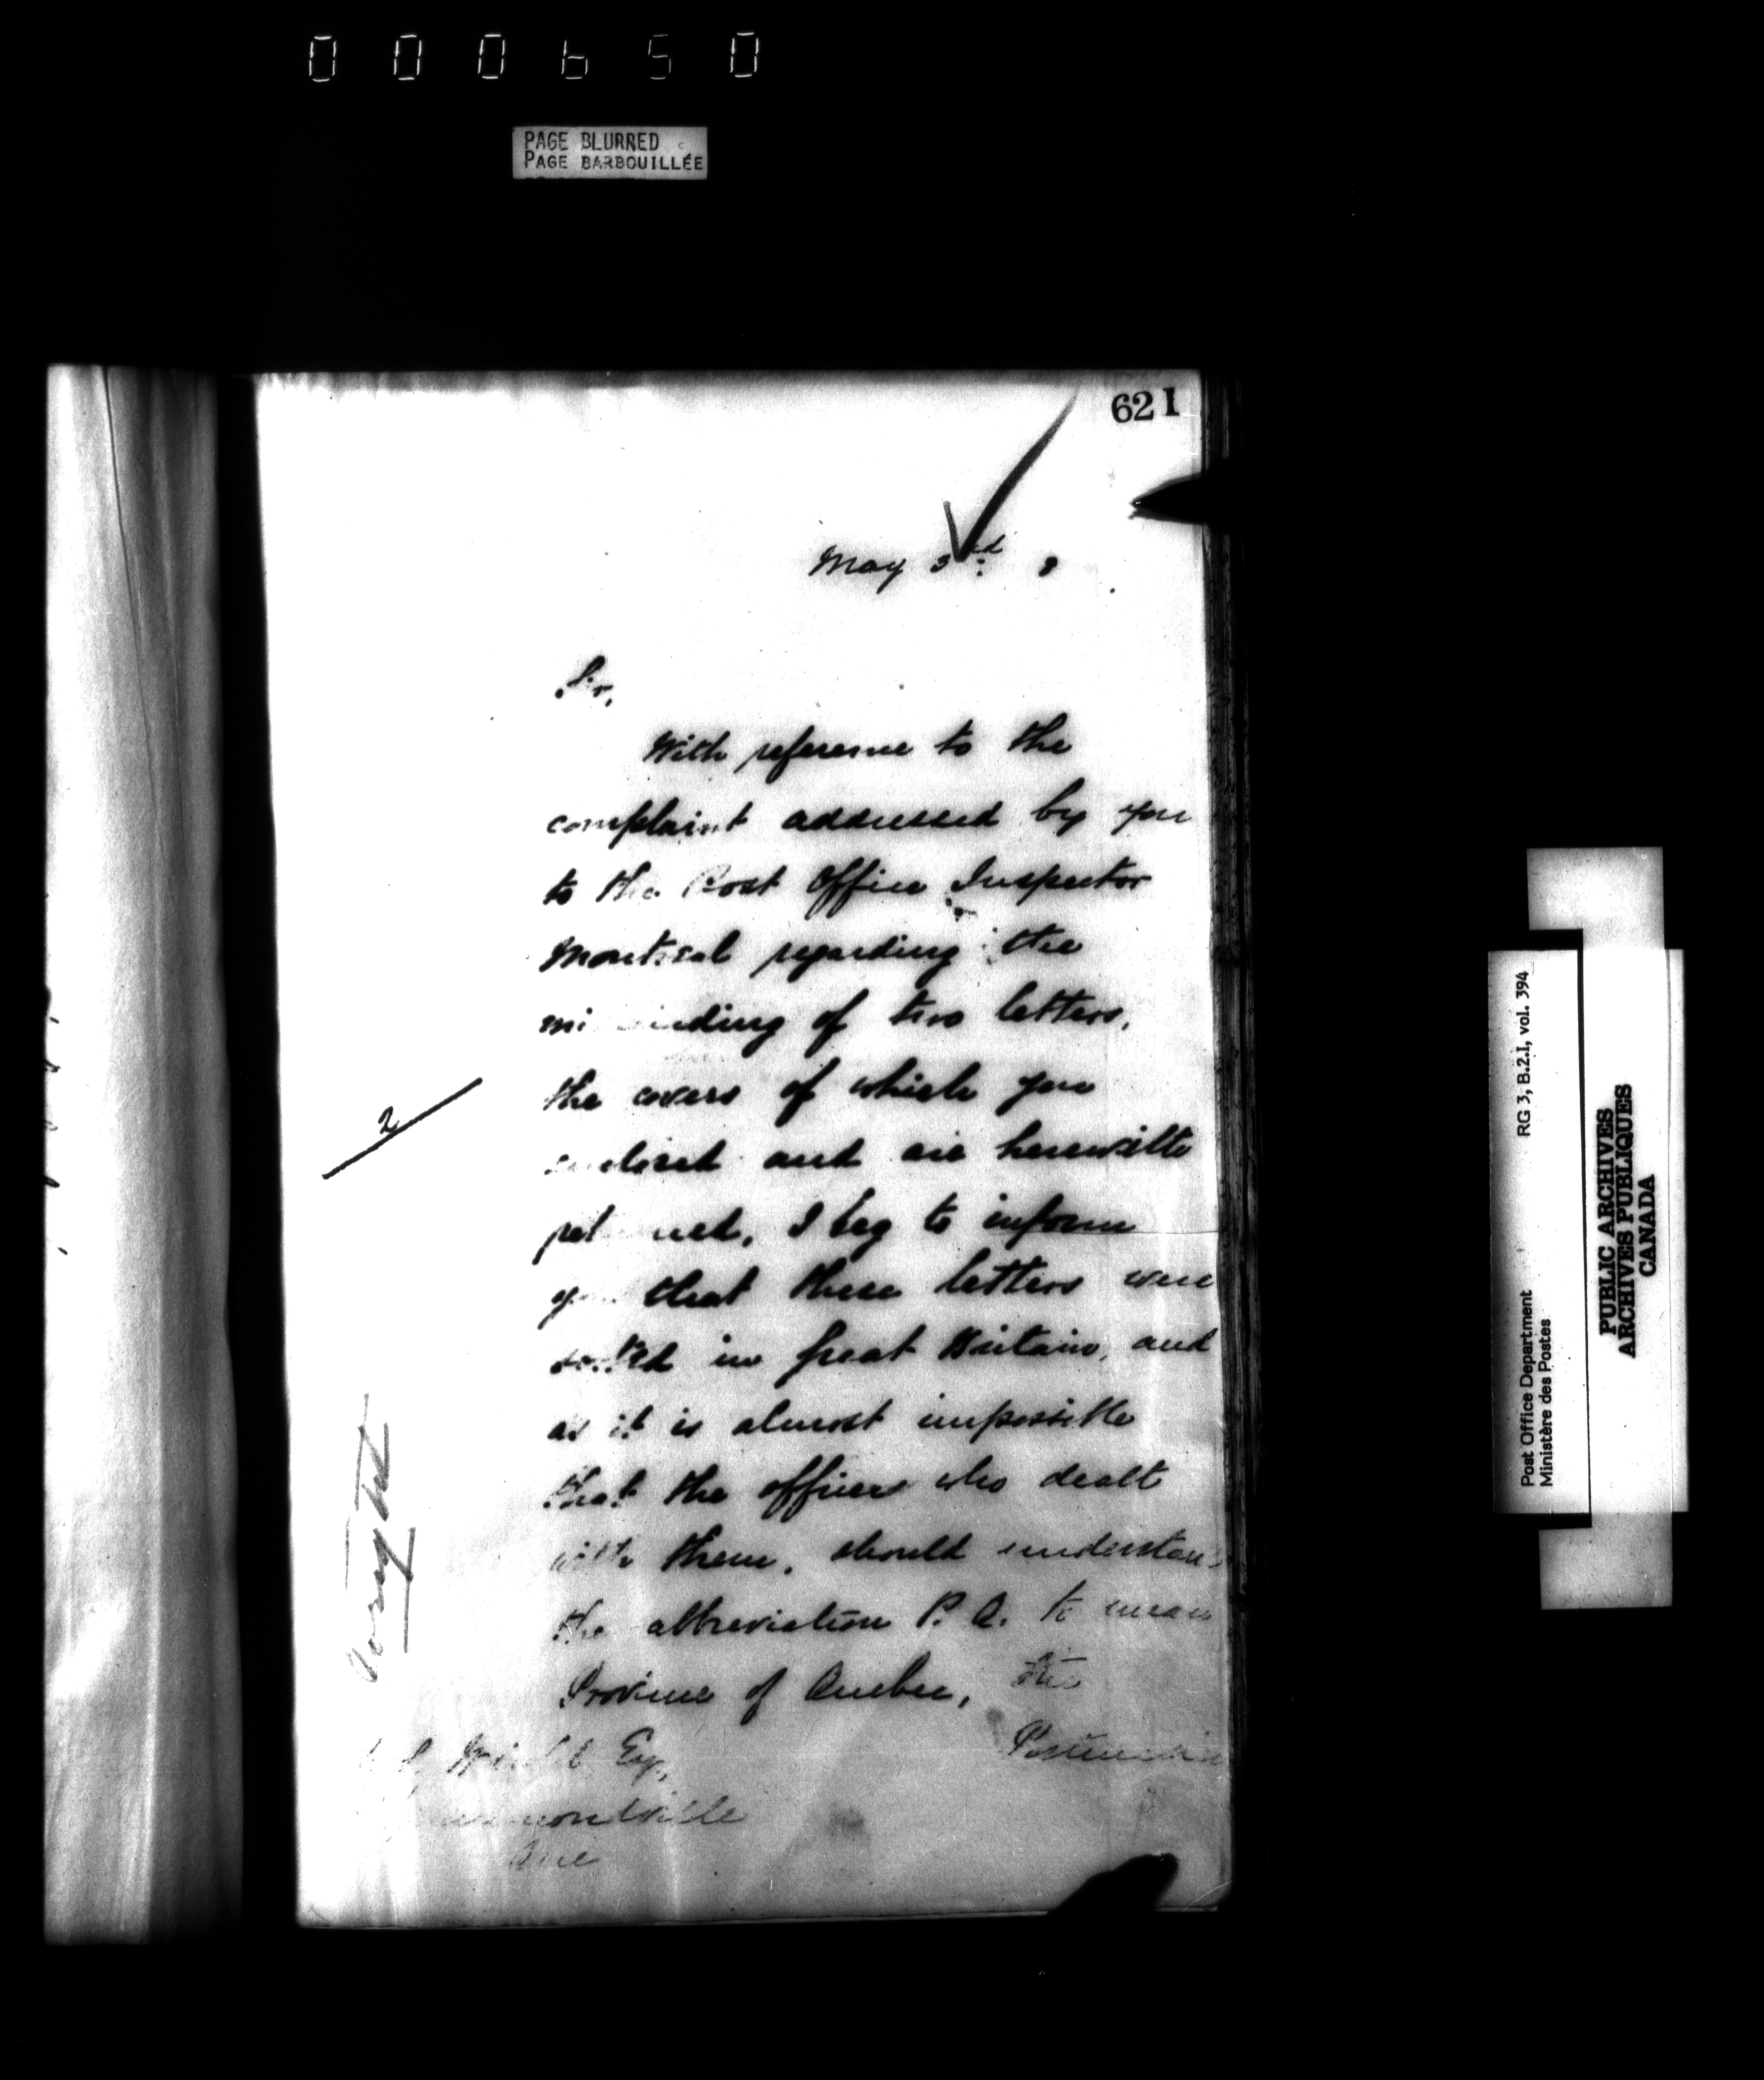 000650
PAGE BLURRED
PAGE BARBOUILLÉE
621
May 3rd 8
Sir,
With reference to the
complaint addressed by you
to the Post Office Inspector
Montreal regarding the
mi nding of two letters,
the covers of which you
enclosed and are herewith
ret ned, I beg to inform
you that these letters were
sorted in Great Britain, and
as it is almost impossible
that the officers who dealt
with them, should understand
the abbreviation P.Q. to mean
Province of Quebec, the
Esq,
Drummondville
Que
2
RG 3, B.2.I, vol. 394
Post Office Department
Ministère des Postes
PUBLIC ARCHIVES
ARCHIVES PUBLIQUES
CANADA